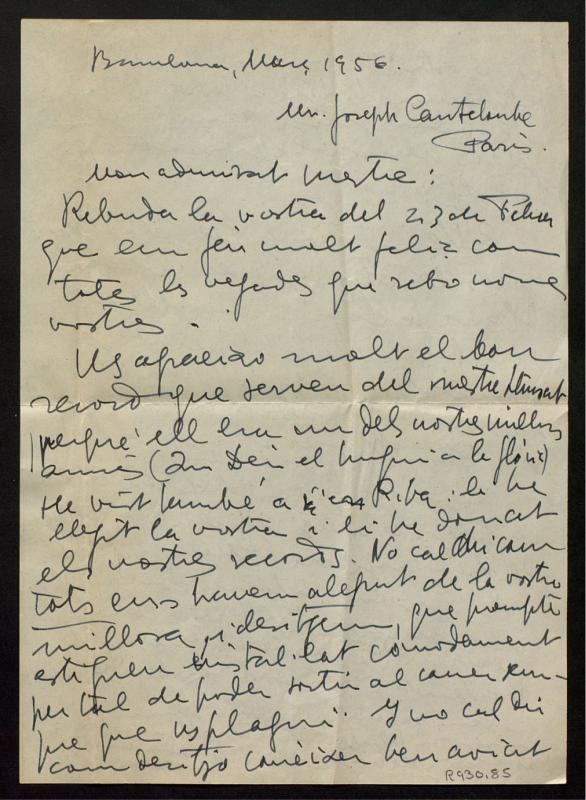 Barcelona, Març 1956.
Mr. Joseph Canteloube
Paris.
Mon admirat mestre:
Rebuda la vostra del 23 de Febrer
que em feu molt feliç com
totes les vegades que rebo noves
vostres.
Us apreciao molt el bon
record que serven del mestre Llongueres
perquè ell era un dels nostres millors
amics (Que Déu el tingui a la glòria)
He vist també a Riba i le he
llegit la vostra i li he donat
els vostres records. No cal dir com
tots ens havem alegrat de la vostra
millora, i desitgem, que prompte
estigueu instal·lat còmodament
per tal de poder sortir al carrer
que us plagui. Y no cal dir
com desitjo conèixer ben aviat
R930.85